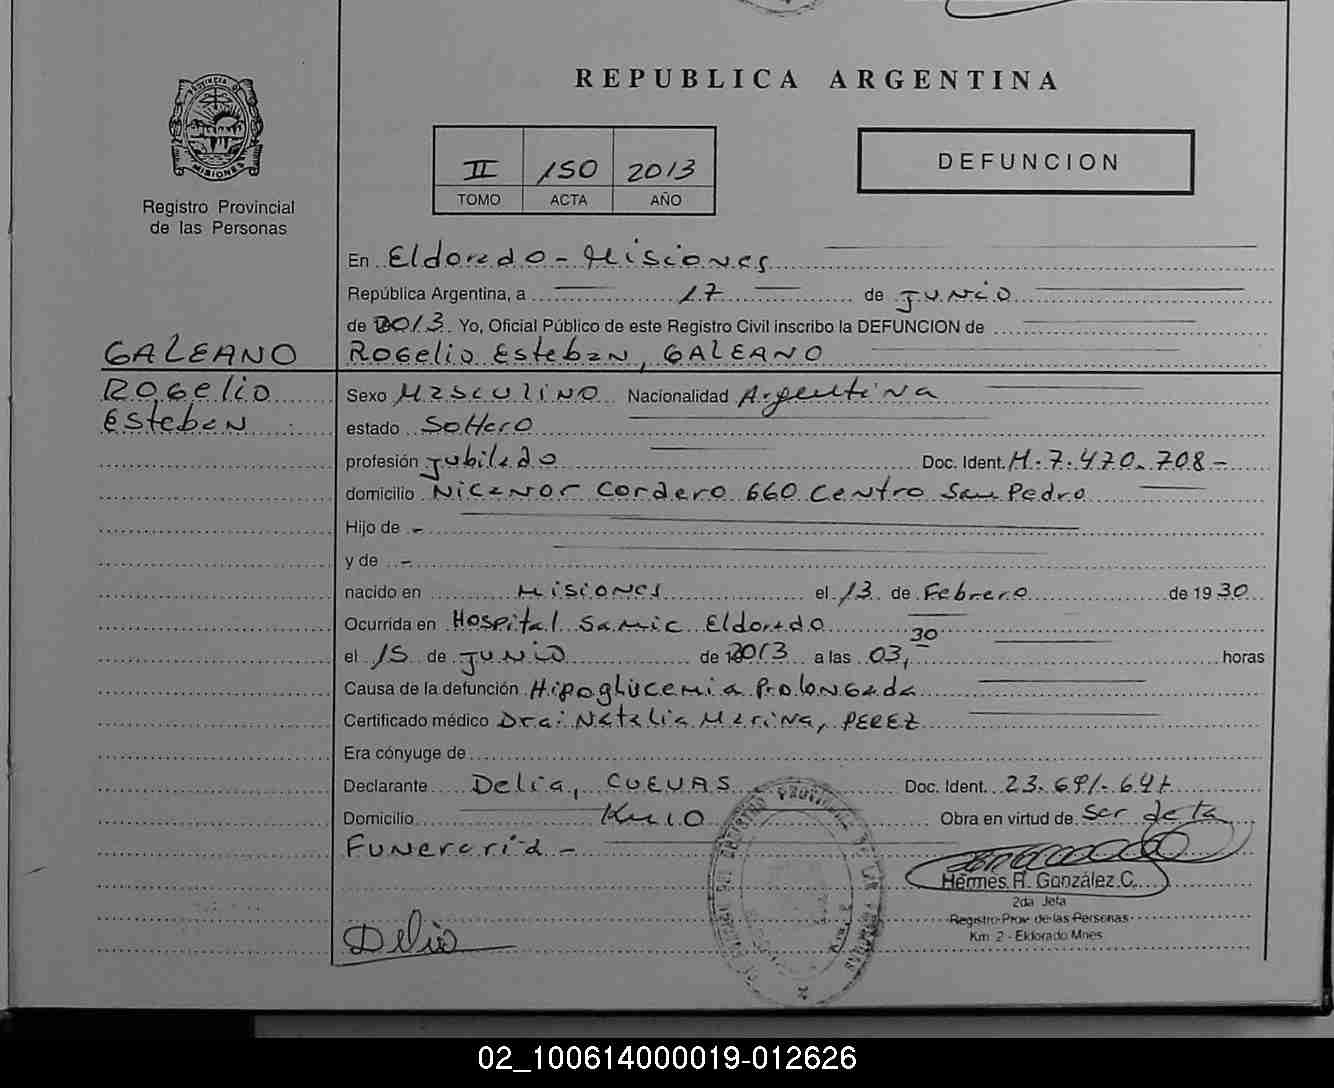 REPUBLICA ARGENTINA
PROVINCIA DE
MISIONES
II 150 2013
TOMO ACTA AÑO
DEFUNCION
Registro Provincial
de las Personas
En Eldorado - Misiones
República Argentina, a 17 de junio
de 2013. Yo, Oficial Público de este Registro Civil inscribo la DEFUNCION de
GALEANO ROGelio Esteban, GALEANO
ROGelio Sexo Masculino Nacionalidad Argentina
Esteban estado Soltero
profesión jubilado Doc. Ident. M. 7.470.708-
domicilio Nicanor Cordero 660 Centro San Pedro
Hijo de -
y de -
nacido en Misiones el 13 de Febrero de 1930
Ocurrida en Hospital Samic Eldorado
el 15 de junio de 2013 a las 03,30 horas
Causa de la defunción Hipoglucemia Prolongada
Certificado médico Dra: Natalia Marina, PEREZ
Era cónyuge de
Declarante Delia, CUEVAS Doc. Ident. 23.691.641
Domicilio Km 10 Obra en virtud de Ser de la
Funeraria -
Hermes R. González C.
2da Jefa
Registro Prov. de las Personas
Km 2 - Eldorado Mnes
Delia
02_100614000019-012626